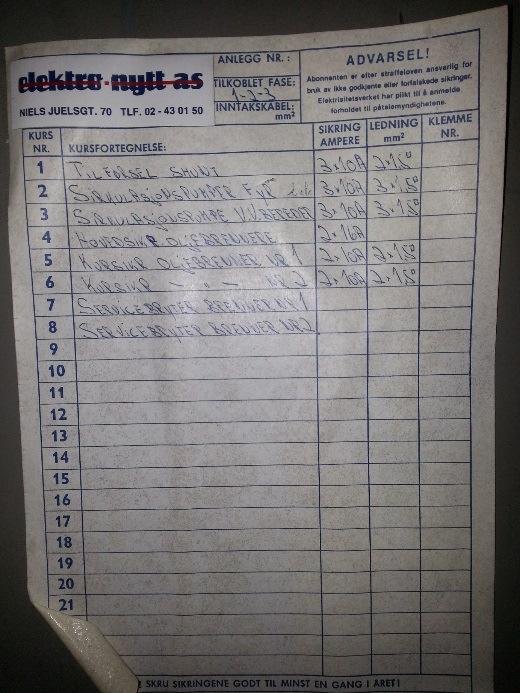 elektro-nytt as
NIELS JUELSGT. 70 TLF. 02 - 43 01 50
ANLEGG NR. :
TILKOBLET FASE:
1-2-3
INNTAKSKABEL:
mm²
ADVARSEL!
Abonnenten er etter straffeloven ansvarlig for
bruk av ikke godkjente eller forfalskede sikringer.
Elektrisitetsverket har plikt til å anmelde
forholdet til påtalemyndighetene.
KURS NR. KURSFORTEGNELSE: SIKRING AMPERE LEDNING mm² KLEMME NR.
1 TILFØRSEL SHUNT 3×10A 2×1,5⁰
2 SIRKULASJONSPUMPE FYR 3×10A 3×1,5⁰
3 SIRKULASJONSPUMPE V.V.BEREDER 3×10A 3×1,5⁰
4 HOVEDSIKR OLJEBRENNERE 2×16A
5 KURSIKR OLJEBRENNER NR 1 2×10A 2×1,5⁰
6 KURSIKR — " — NR 2 2×10A 2×1,5⁰
7 SERVICEBRYTER BRENNER NR 1
8 SERVICEBRYTER BRENNER NR 2
9
10
11
12
13
14
15
16
17
18
19
20
21
SKRU SIKRINGENE GODT TIL MINST EN GANG I ÅRET!